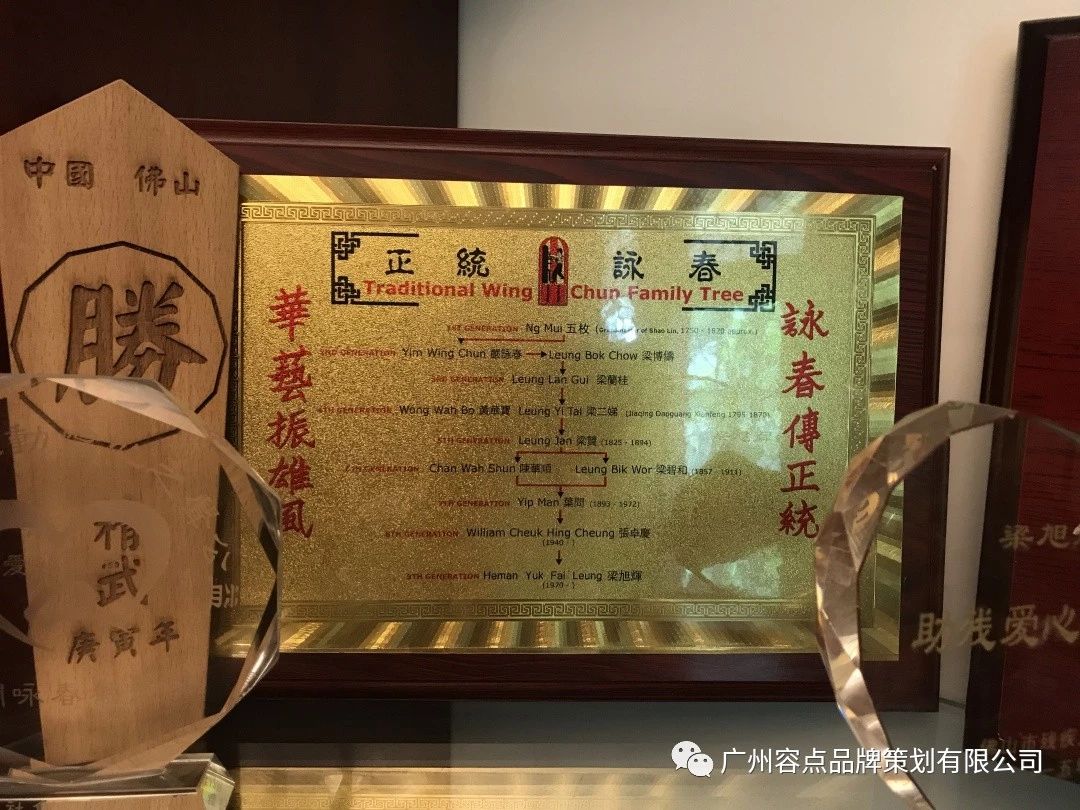 中國 佛山
勝
武
庚寅年
正統 詠春
Traditional Wing Chun Family Tree
華藝振雄風
1ST GENERATION Ng Mui 五枚 (Grandmaster of Shao Lin, 1750 - 1820 approx.)
2ND GENERATION Yim Wing Chun 嚴詠春 Leung Bok Chow 梁博儔
3RD GENERATION Leung Lan Gui 梁蘭桂
4TH GENERATION Wong Wah Bo 黃華寶 Leung Yi Tai 梁二娣 (Jiaqing Daoguang Xianfeng 1795-1870)
5TH GENERATION Leung Jan 梁贊 (1825 - 1894)
6TH GENERATION Chan Wah Shun 陳華順 Leung Bik Wor 梁碧和 (1857 - 1911)
7TH GENERATION Yip Man 葉問 (1893 - 1972)
8TH GENERATION William Cheuk Hing Cheung 張卓慶
(1940 - )
9TH GENERATION Heman Yuk Fai Leung 梁旭輝
(1970 - )
詠春傳正統
咏春
梁旭
助残爱心
广州容点品牌策划有限公司